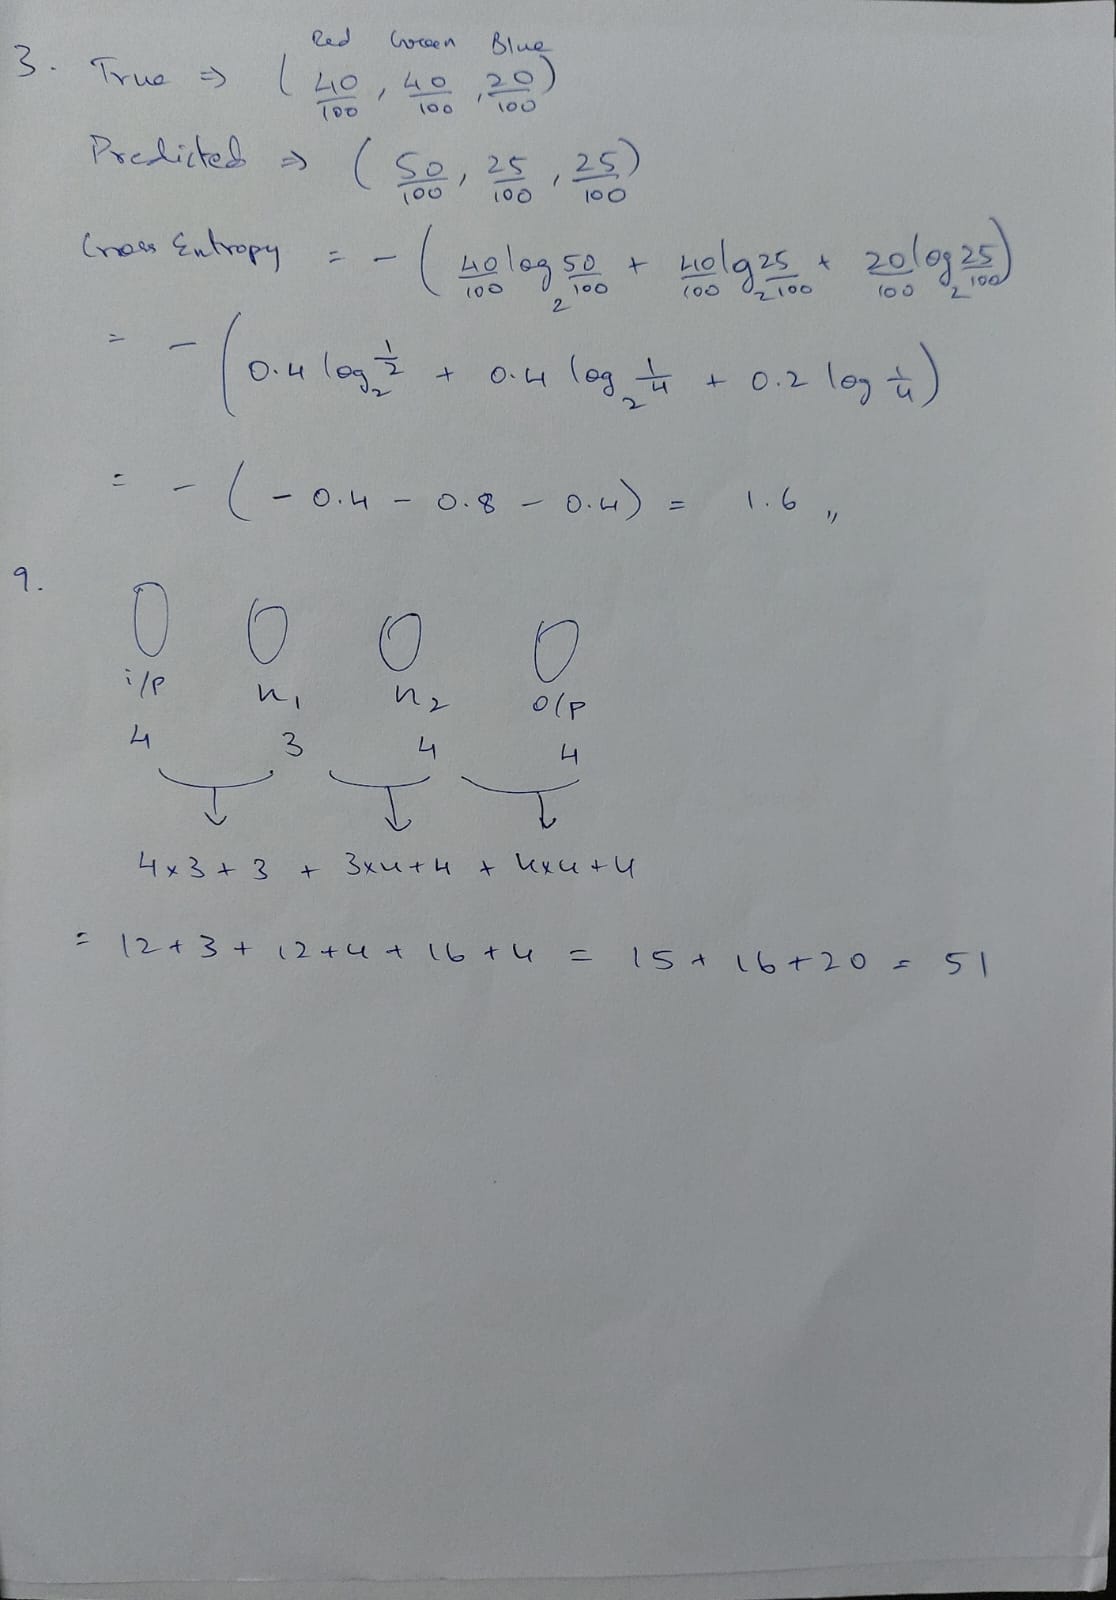 Red Green Blue
3. True ⇒ ( 40/100 , 40/100 , 20/100 )
Predicted ⇒ ( 50/100 , 25/100 , 25/100 )
Cross Entropy = - ( 40/100 log₂ 50/100 + 40/100 lg₂ 25/100 + 20/100 log₂ 25/100 )
= - ( 0.4 log₂ 1/2 + 0.4 log₂ 1/4 + 0.2 log 1/4 )
= - ( - 0.4 - 0.8 - 0.4 ) = 1.6 ,,
9.
i/p n₁ n₂ o/p
4 3 4 4
4x3+3 + 3x4+4 + 4x4+4
= 12+3+12+4+16+4 = 15+16+20 = 51